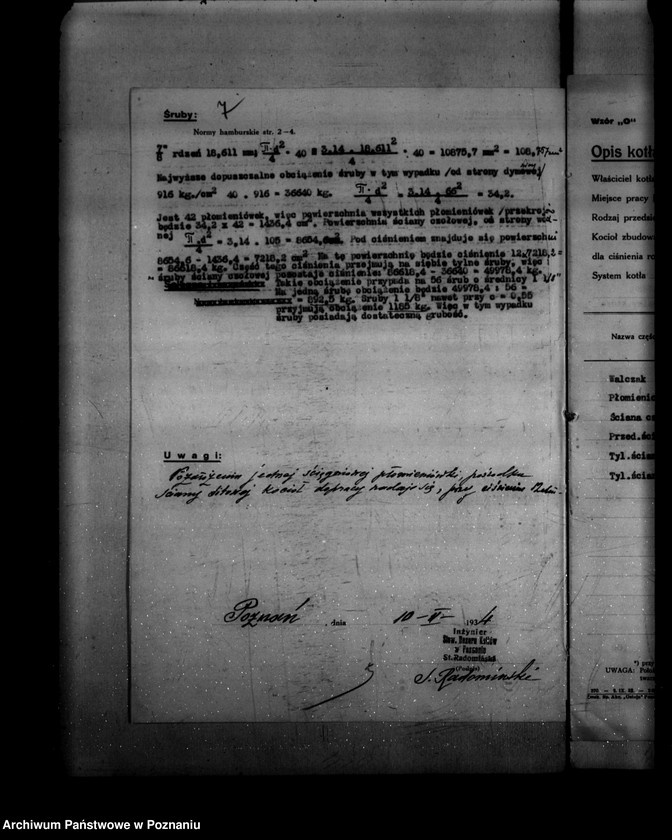 Śruby:
7
Normy hamburskie str. 2-4.
7"/8 rdzeń 18,611 mm; π·d²/4 · 40 = 3.14 · 18.611²/4 · 40 = 10875,7 mm² = 108,757 cm²
Najwyższe dopuszczalne obciążenie śruby w tym wypadku /od strony dymowej/
916 kg./cm² 40 . 916 = 36640 kg. π·d²/4 = 3.14 · 66²/4 = 34,2.
Jest 42 płomieniówek, więc powierzchnia wszystkich płomieniówek /przekroju/
będzie 34,2 x 42 = 1436,4 cm². Powierzchnia ściany czołowej, od strony
nej π·d²/4 = 3,14 . 105 = 8654,6 Pod ciśnieniem znajduje się powierzchni
8654,6 - 1436,4 = 7218,2 cm² Na tę powierzchnię będzie ciśnienie 12x7218,2=
= 86618,4 kg. Część tego ciśnienia przejmują na siebie tylne śruby, więc
śruby ściany czołowej pozostaje ciśnienie: 86618,4 - 36640 = 49978,4 kg.
Takie obciążenie przypada na 56 śrub o średnicy 1 1/8"
Na jedną śrubę obciążenie będzie 49978,4 : 56 =
= 892,5 kg. Śruby 1 1/8" nawet przy c = 0,55
przyjmują obciążenie 1185 kg. Więc w tym wypadku
śruby posiadają dostateczną grubość.
Uwagi:
jednej płomieniówki, pośrodku
ściany sitowej kocioł do pracy nadaje się, przy ciśnieniu
Poznań, dnia 10-II- 1934
Inżynier
Stow. Dozoru Kotłów
w Poznaniu
St. Radomiński
(Podpis)
S. Radomiński
Wzór „O"
Opis kotł
Właściciel kotła
Miejsce pracy
Rodzaj przedsię
Kocioł zbudowa
dla ciśnienia ro
System kotła
Nazwa częś
Walczak
Płomienic
Ściana cz
Przed.ści
Tyl.ścian
Tyl.ścian
*) przy
UWAGA:
Archiwum Państwowe w Poznaniu